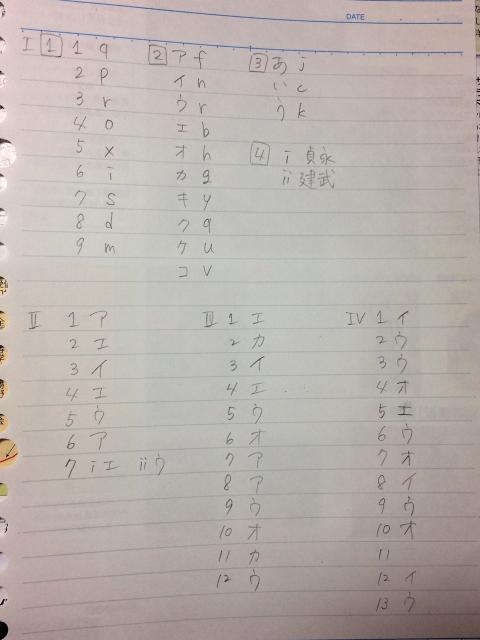 DATE
I 1 1 q
2 p
3 r
4 o
5 x
6 i
7 s
8 d
9 m
2 ア f
イ n
ウ r
エ b
オ h
カ g
キ y
ク q
ケ u
コ v
3 あ j
い c
う k
4 i 貞永
ii 建武
II 1 ア
2 エ
3 イ
4 エ
5 ウ
6 ア
7 i エ ii ウ
III 1 エ
2 カ
3 イ
4 エ
5 ウ
6 オ
7 ア
8 ア
9 ウ
10 オ
11 カ
12 ウ
IV 1 イ
2 ウ
3 ウ
4 オ
5 エ
6 ウ
7 オ
8 イ
9 ウ
10 オ
11
12 イ
13 ウ